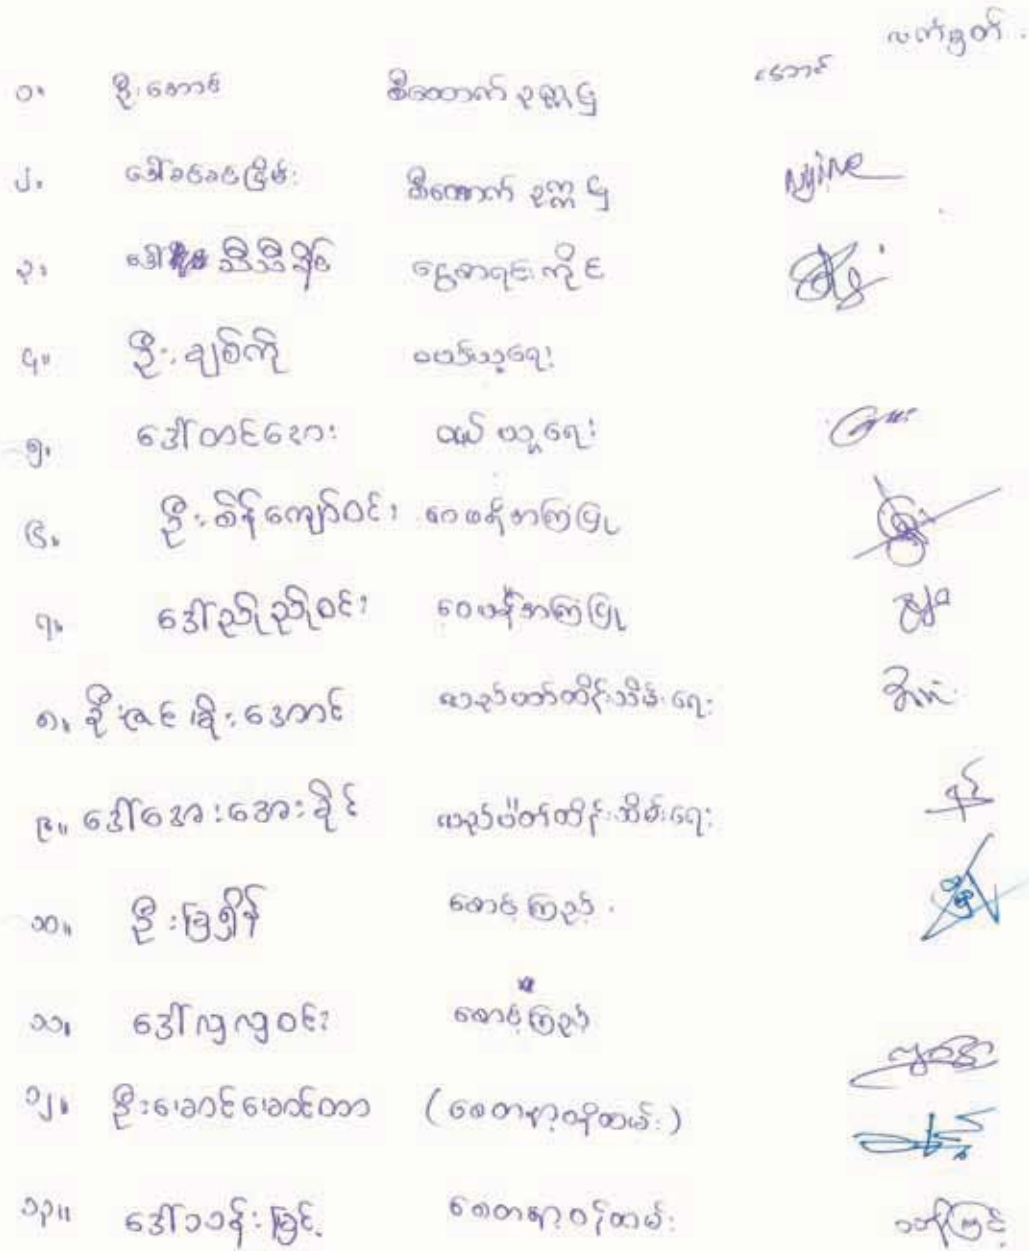 လက်မှတ်
၁။ ဦးအောင် စီထောက် ဥက္ကဋ္ဌ အောင်
၂။ ဒေါ်ခင်ခင်ငြိမ်း စီထောက် ဥက္ကဋ္ဌ
၃။ ဒေါ် သီသီခိုင် ငွေစာရင်းကိုင်
၄။ ဦးချစ်ကို ဝယ်ယူရေး
၅။ ဒေါ်တင်အေး ဝယ်ယူရေး
၆။ ဦးစိန်ကျော်ဝင်း ဝေဖန်အကြံပြု
၇။ ဒေါ်ညိုညိုဝင်း ဝေဖန်အကြံပြု
၈။ ဦးဇင်မိုးအောင် လည်ပတ်ထိန်းသိမ်းရေး
၉။ ဒေါ်အေးအေးခိုင် လည်ပတ်ထိန်းသိမ်းရေး
၁၀။ ဦးမြရှိန် စောင့်ကြည့်
၁၁။ ဒေါ်လှလှဝင်း စောင့်ကြည့်
၁၂။ ဦးမောင်မောင်တာ (စေတနာ့ဝန်ထမ်း)
၁၃။ ဒေါ်သန်းမြင့် စေတနာ့ဝန်ထမ်း